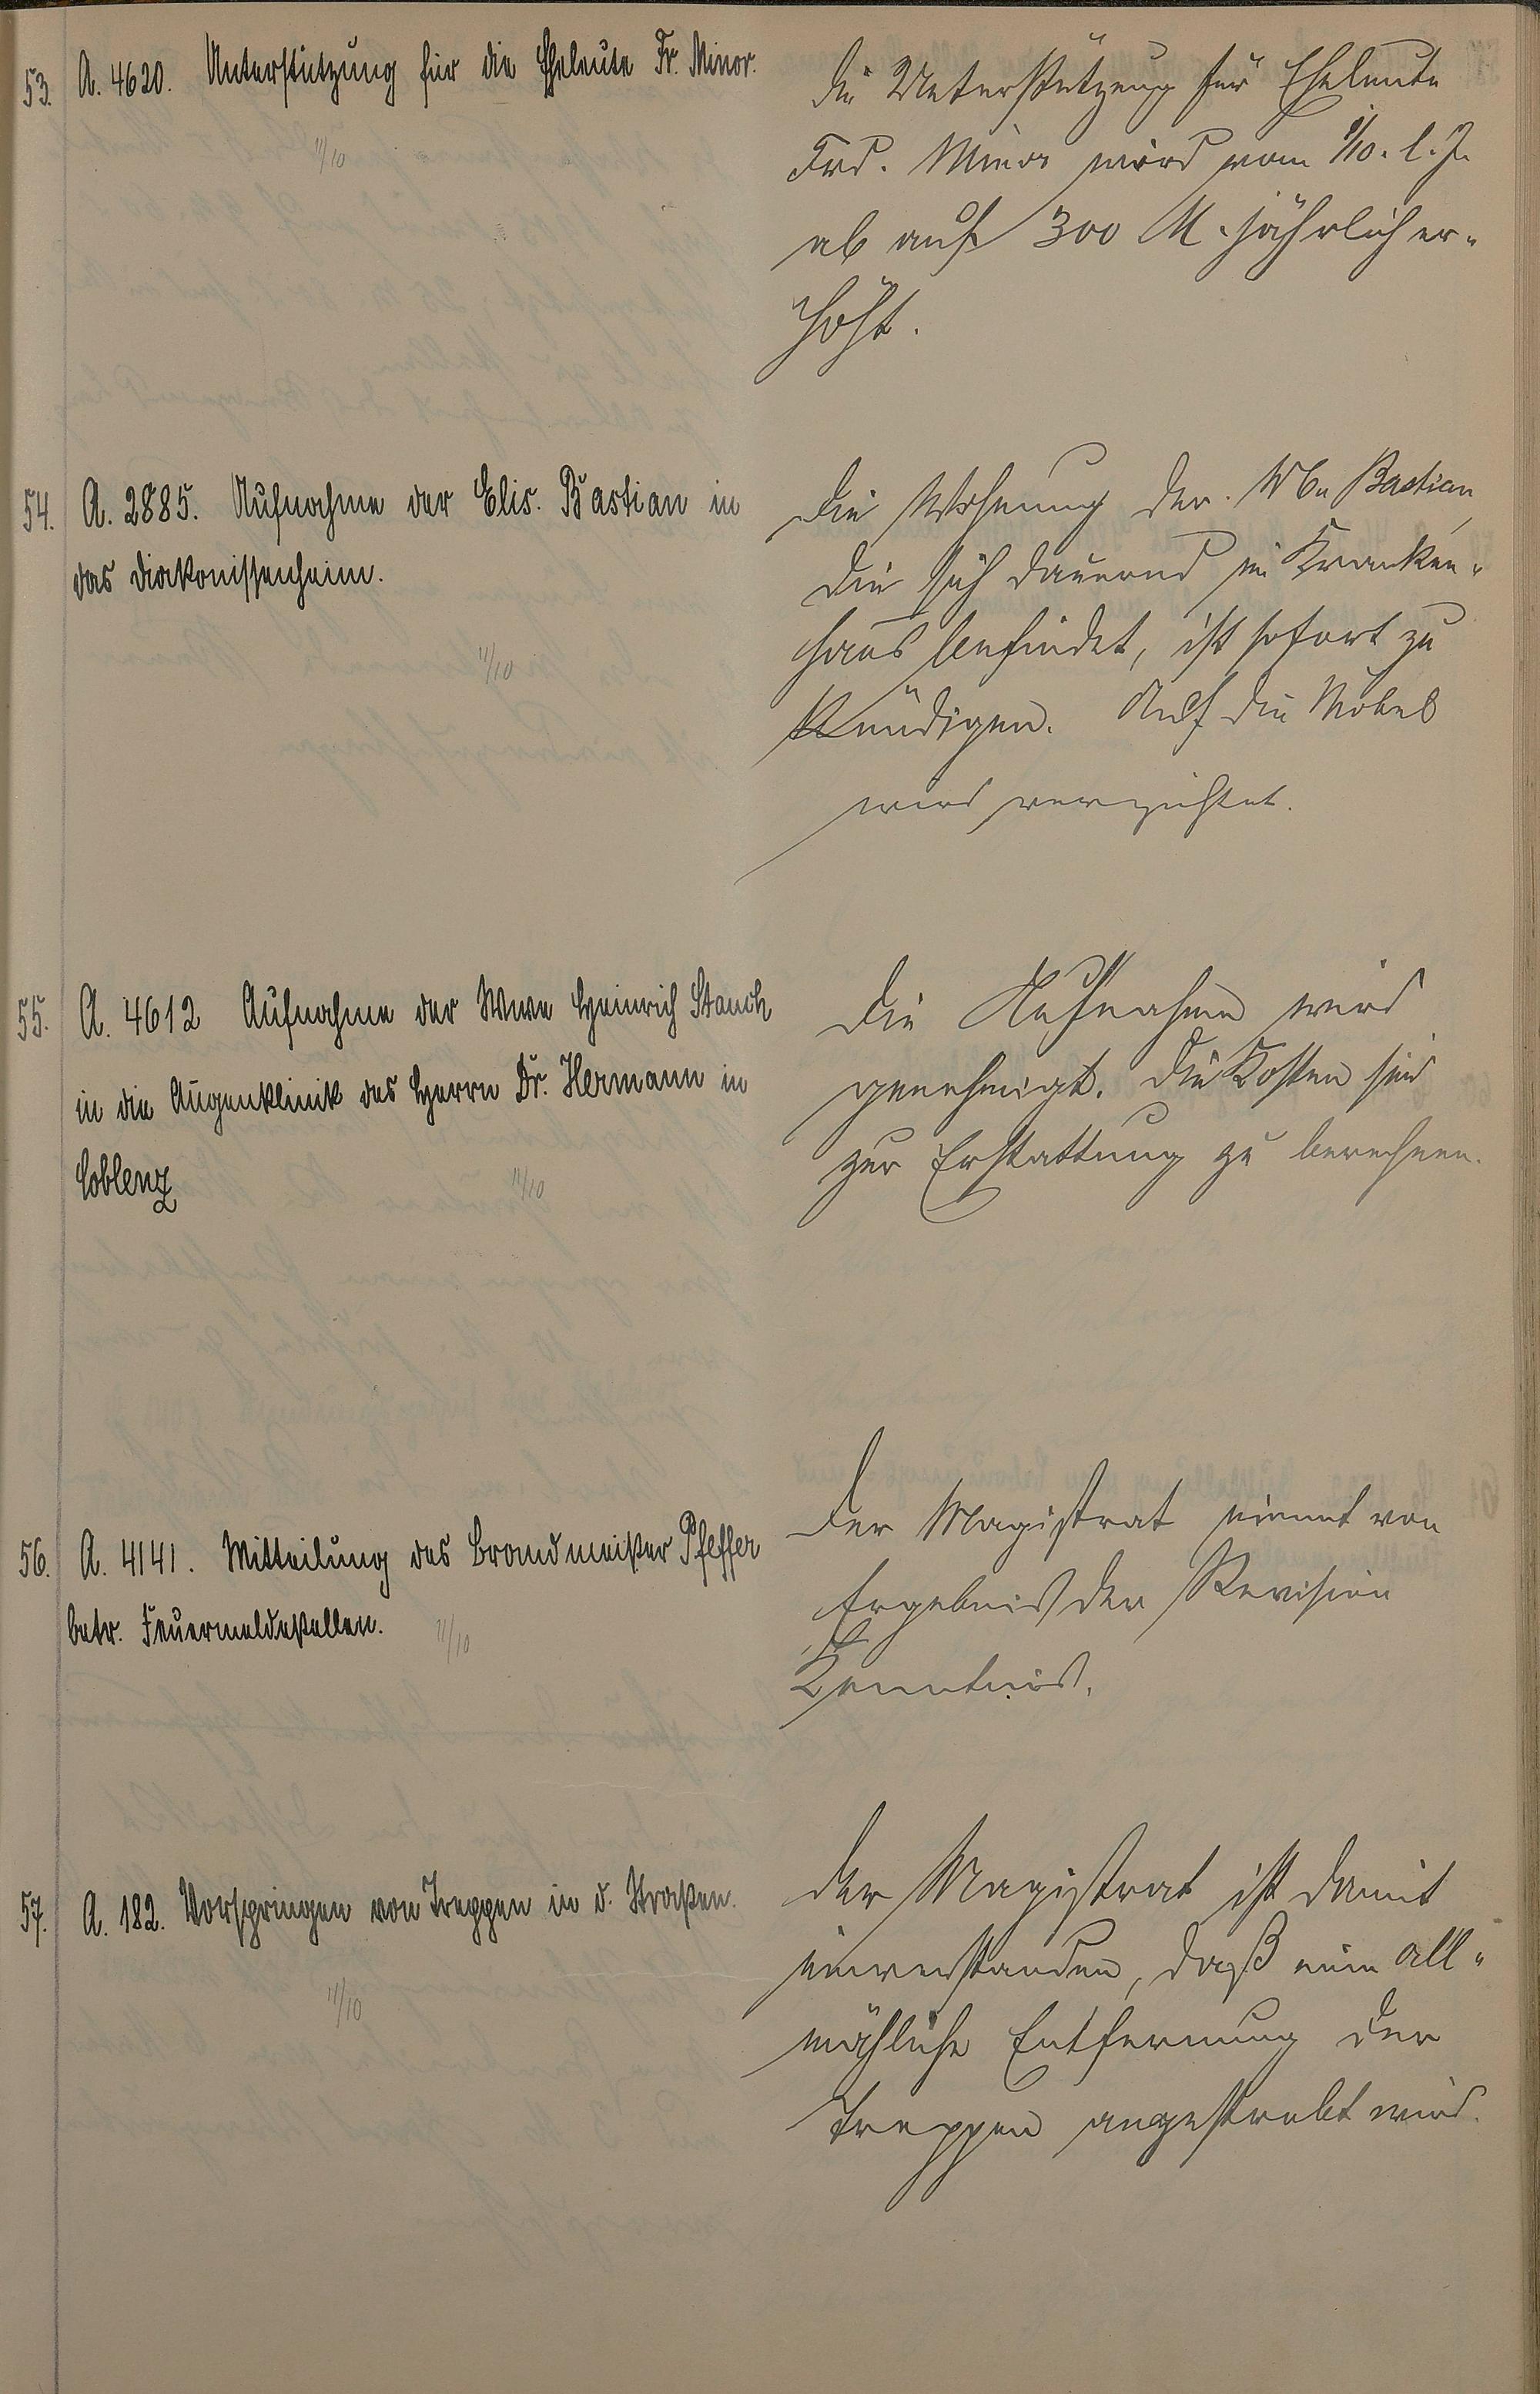 53. A. 4620. Unterstützung für die Eheleute Fr. Minor.
11/10
Die Unterstützung für Eheleute
Frd. Minor wird vom 1/10. l. J.
ab auf 300 M. jährlich er-
höht.
54. A. 2885. Aufnahme der Elis. Bastian in
das Diakonissenheim.
11/10
Die Wohnung der Wwe Bastian,
die sich dauernd im Kranken-
haus befindet, ist sofort zu
kündigen. Auf die Möbel
wird verzichtet.
55. A. 4612 Aufnahme der Wwe Heinrich Stauch
in die Augenklinik des Herrn Dr. Hermann in
Coblenz
11/10
Die Aufnahme wird
genehmigt. Die Kosten sind
zur Erstattung zu berechnen.
56. A. 4141. Mitteilung des Brandmeister Pfeffer
betr. Feuermeldestellen.
11/10
Der Magistrat nimmt von
Ergebniß der Revision
Kenntnis.
57. A. 182. Vorspringen von Treppen in d. Straßen.
11/10
Der Magistrat ist damit
einverstanden, daß eine all-
mähliche Entfernung der
Treppen angestrebt wird.